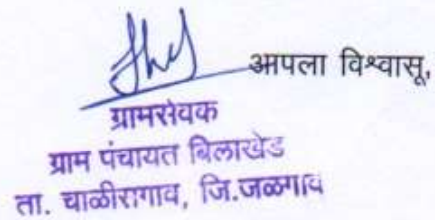 आपला विश्वासू,
ग्रामसेवक
ग्राम पंचायत बिलाखेड
ता. चाळीसगाव, जि.जळगाव